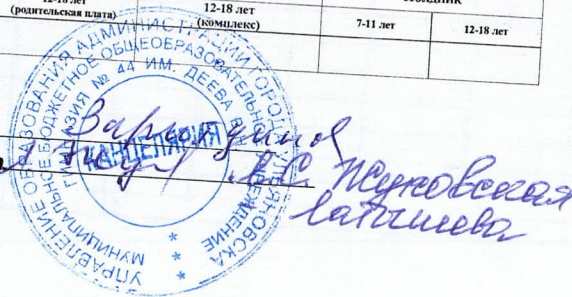 12-18 лет
(родительская плата)
12-18 лет
(комплекс)
7-11 лет
12-18 лет
УПРАВЛЕНИЕ ОБРАЗОВАНИЯ АДМИНИСТРАЦИИ ГОРОДА УЛЬЯНОВСКА
МУНИЦИПАЛЬНОЕ БЮДЖЕТНОЕ ОБЩЕОБРАЗОВАТЕЛЬНОЕ УЧРЕЖДЕНИЕ
ГИМНАЗИЯ № 44 ИМ. ДЕЕВА В.Н.
КАНЦЕЛЯРИЯ
Жуковская
Латышева